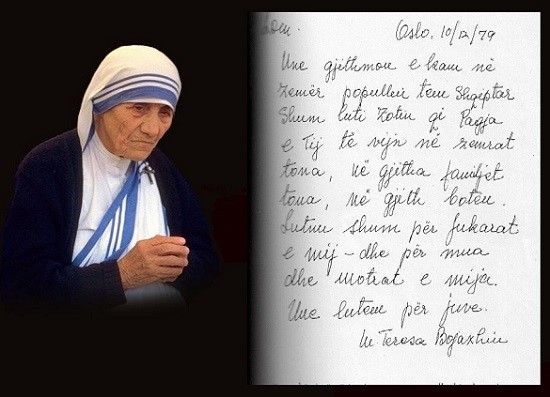 Oslo, 10/12/79
Une gjithmon e kam në
zemër popullin tem Shqiptar
Shum luti Zotin qi Paqja
e Tij të vijn në zemrat
tona, në gjitha familjet
tona, në gjith boten.
Lutnu shum për fukarat
e mij - dhe për mua
dhe motrat e mija.
Une lutem për juve.
M. Teresa Bojaxhiu